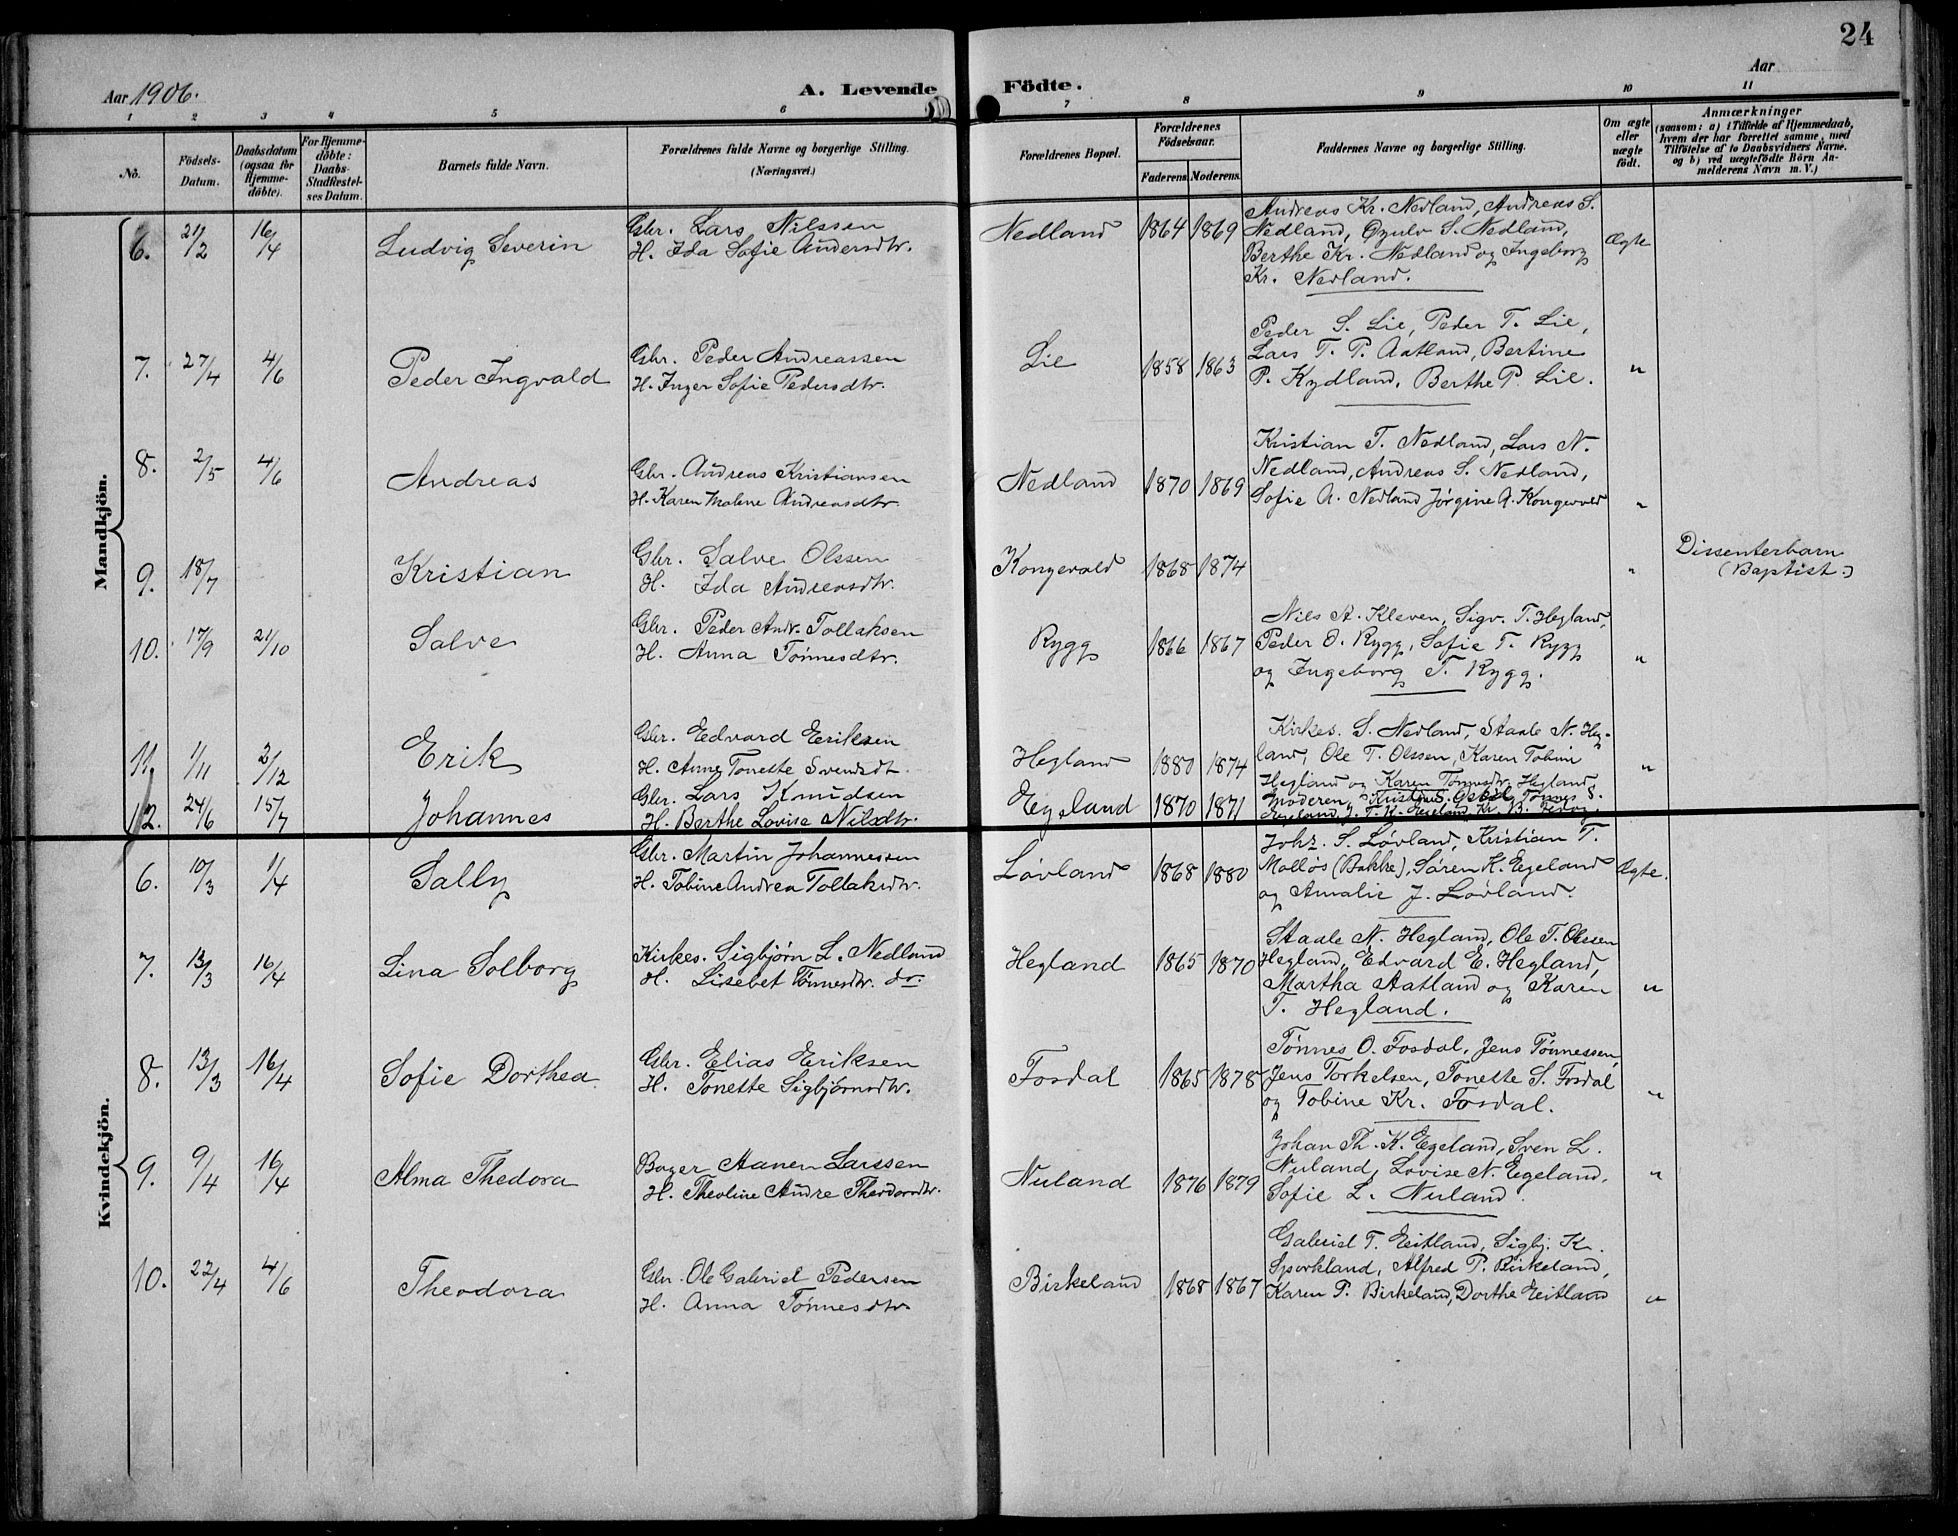 24
Aar 1906. A. Levende Födte. Aar
1 2 3 4 5 6 7 8 9 10 11
No. Födsels-Datum. Daabsdatum (ogsaa for Hjemme-döbte). For Hjemme-döbte: Daabs-Stadfæstel-ses Datum. Barnets fulde Navn. Forældrenes fulde Navne og borgerlige Stilling. (Næringsvei.) Forældrenes Bopæl. Forældrenes Födselsaar. Faderens. Moderens. Faddernes Navne og borgerlige Stilling. Om ægte eller uægte födt. Anmærkninger (saasom: a) i Tilfælde af Hjemmedaab, hvem der har forrettet samme, med Tilföielse af to Daabsvidners Navne. og b) ved uægtefödte Börn An-melderens Navn m. V.)
Mandkjön.
6. 21/2 16/4 Ludvig Severin Gbr. Lars Nilssen Nedland 1864 1869 Andreas Kr. Nedland, Andreas S. Ægte
H. Ida Sofie Andersdtr. Nedland, Ozulv S. Nedland,
Berthe Kr. Nedland og Ingeborg
Kr. Nedland.
7. 27/4 4/6 Peder Ingvald Gbr. Peder Andreassen Lie 1858 1863 Peder S. Lie, Peder T. Lie, "
H. Inger Sofie Pedersdtr. Lars T. P. Aatland, Bertine
P. Kydland, Berthe P. Lie.
8. 2/5 4/6 Andreas Gbr. Andreas Kristiansen Nedland 1870 1869 Kristian T. Nedland, Lars N. "
H. Karen Malene Andreasdtr. Nedland, Andreas S. Nedland,
Sofie A. Nedland Jørgine A. Kongevold
9. 18/7 Kristian Gbr. Salve Olssen Kongevold 1868 1874 " Dissenterbarn
H. Ida Andreasdtr. (Baptist.)
10. 17/9 21/10 Salve Gbr. Peder Andr. Tollaksen Rygg 1866 1867 Nils A. Kleven, Sigv. T. Hegland, "
H. Anna Tønnesdtr. Peder O. Rygg, Sofie T. Rygg
og Ingeborg T. Rygg.
11. 1/11 2/12 Erik Gbr. Edvard Eriksen Hegland 1880 1874 Kirkes. S. Nedland, Staale N. Heg- "
H. Anne Tonette Svendsdt. land, Ole T. Olssen, Karen Tobine
Hegland og Karen Tønnesdtr. Hegland
12. 24/6 15/7 Johannes Gbr. Lars Knudsen Egeland 1870 1871 Moderen,
H. Berthe Lovise Nilsdtr.
Kvindekjön.
6. 10/3 1/4 Sally Gbr. Martin Johannessen Løvland 1868 1880 Johs. S. Løvland, Kristian T. Ægte.
H. Tobine Andrea Tollaksdtr. Molløs (Bakke), Søren K. Egeland
og Amalie J. Løvland.
7. 13/3 16/4 Lina Solborg Kirkes. Sigbjørn L. Nedland Hegland 1865 1870 Staale N. Hegland, Ole T. Olssen "
H. Lisebet Tønnesdtr. do. Hegland, Edvard E. Hegland,
Martha Aatland og Karen
T. Hegland.
8. 13/3 16/4 Sofie Dorthea Gbr. Elias Eriksen Fosdal 1865 1878 Tønnes O. Fosdal, Jens Tønnessen, "
H. Tonette Sigbjørnsdtr. Jens Torkelsen, Tonette S. Fosdal
og Tobine Kr. Fosdal.
9. 9/4 16/4 Alma Thedora Bager Aanen Larssen Nuland 1876 1879 Johan Th. K. Egeland, Sven L. "
H. Theoline Andre Theodorsdtr. Nuland, Lovise N. Egeland,
Sofie L. Nuland.
10. 22/4 4/6 Theodora Gbr. Ole Gabriel Pedersen Birkeland 1868 1867 Gabriel T. Eitland, Sigbj. K. "
H. Anna Tønnesdtr. Sporkland, Alfred P. Birkeland,
Karen P. Birkeland, Dorthe Eitland